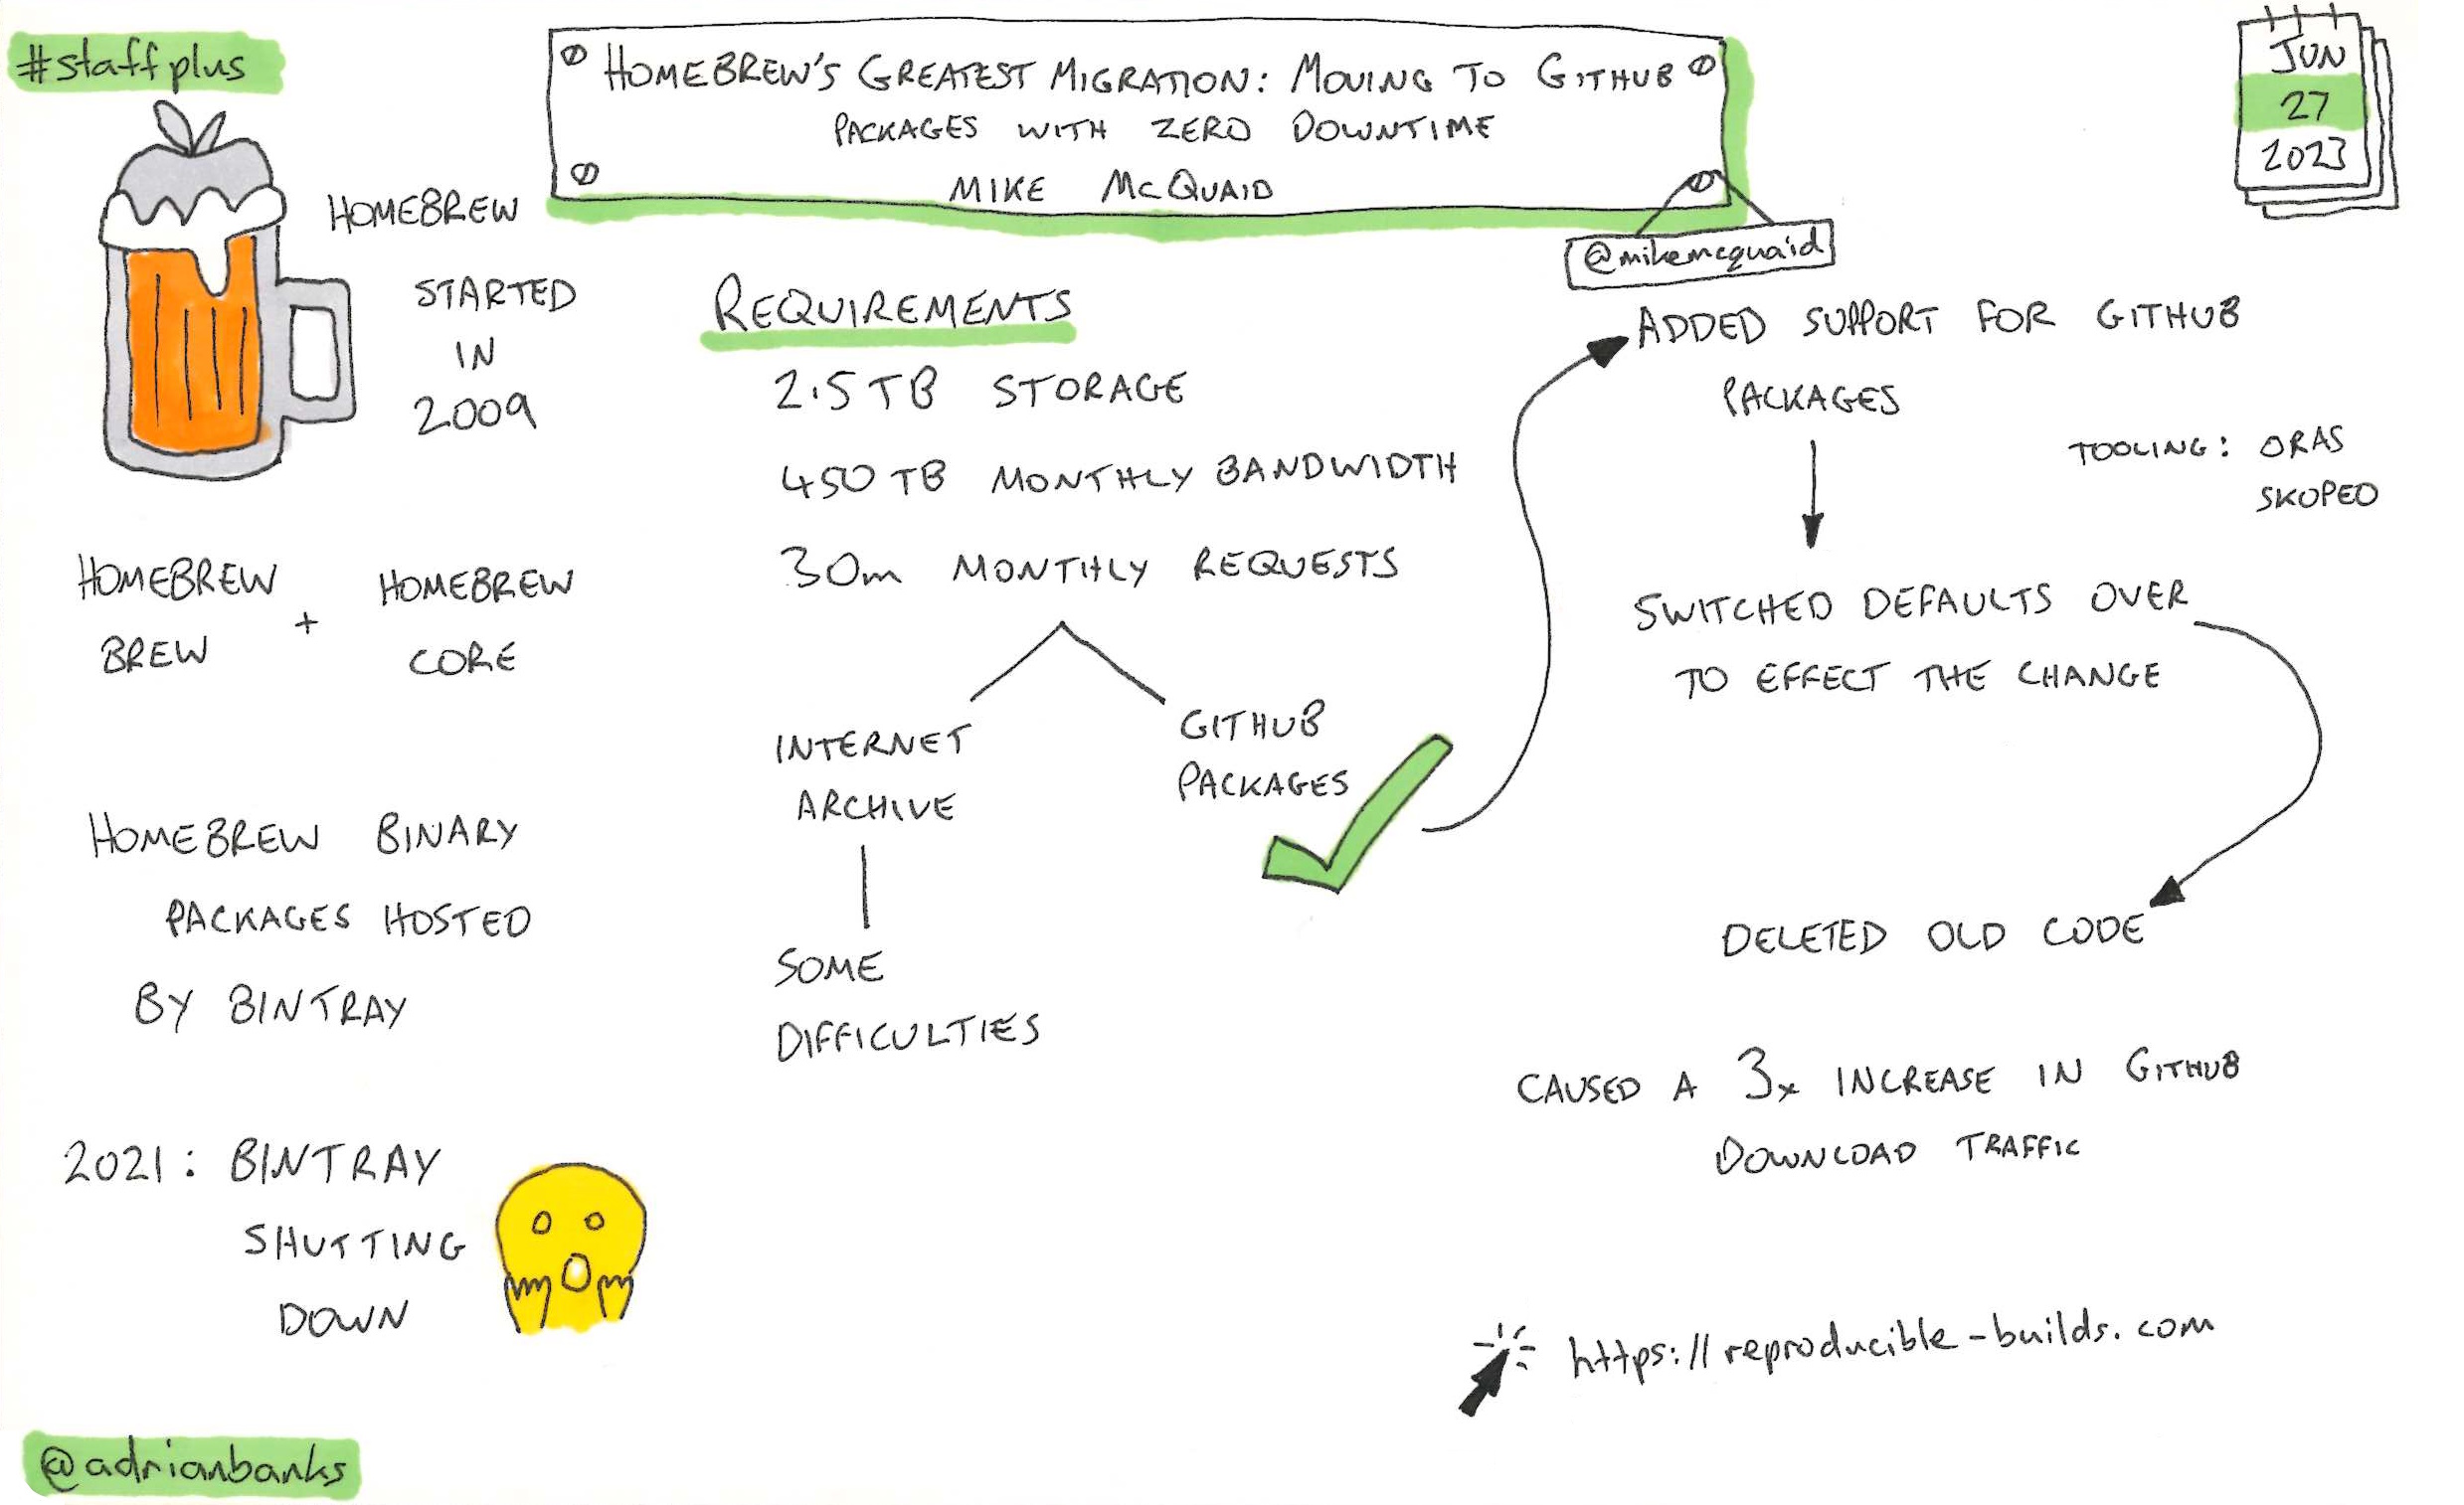 #staffplus
HOMEBREW'S GREATEST MIGRATION: MOVING TO GITHUB
PACKAGES WITH ZERO DOWNTIME
MIKE McQUAID
@mikemcquaid
JUN
27
2023
HOMEBREW
STARTED
IN
2009
HOMEBREW
BREW
+
HOMEBREW
CORE
HOMEBREW BINARY
PACKAGES HOSTED
BY BINTRAY
2021: BINTRAY
SHUTTING
DOWN
REQUIREMENTS
2.5 TB STORAGE
450 TB MONTHLY BANDWIDTH
30m MONTHLY REQUESTS
INTERNET
ARCHIVE
SOME
DIFFICULTIES
GITHUB
PACKAGES
ADDED SUPPORT FOR GITHUB
PACKAGES
TOOLING: ORAS
SKOPEO
SWITCHED DEFAULTS OVER
TO EFFECT THE CHANGE
DELETED OLD CODE
CAUSED A 3x INCREASE IN GITHUB
DOWNLOAD TRAFFIC
https://reproducible-builds.com
@adrianbanks